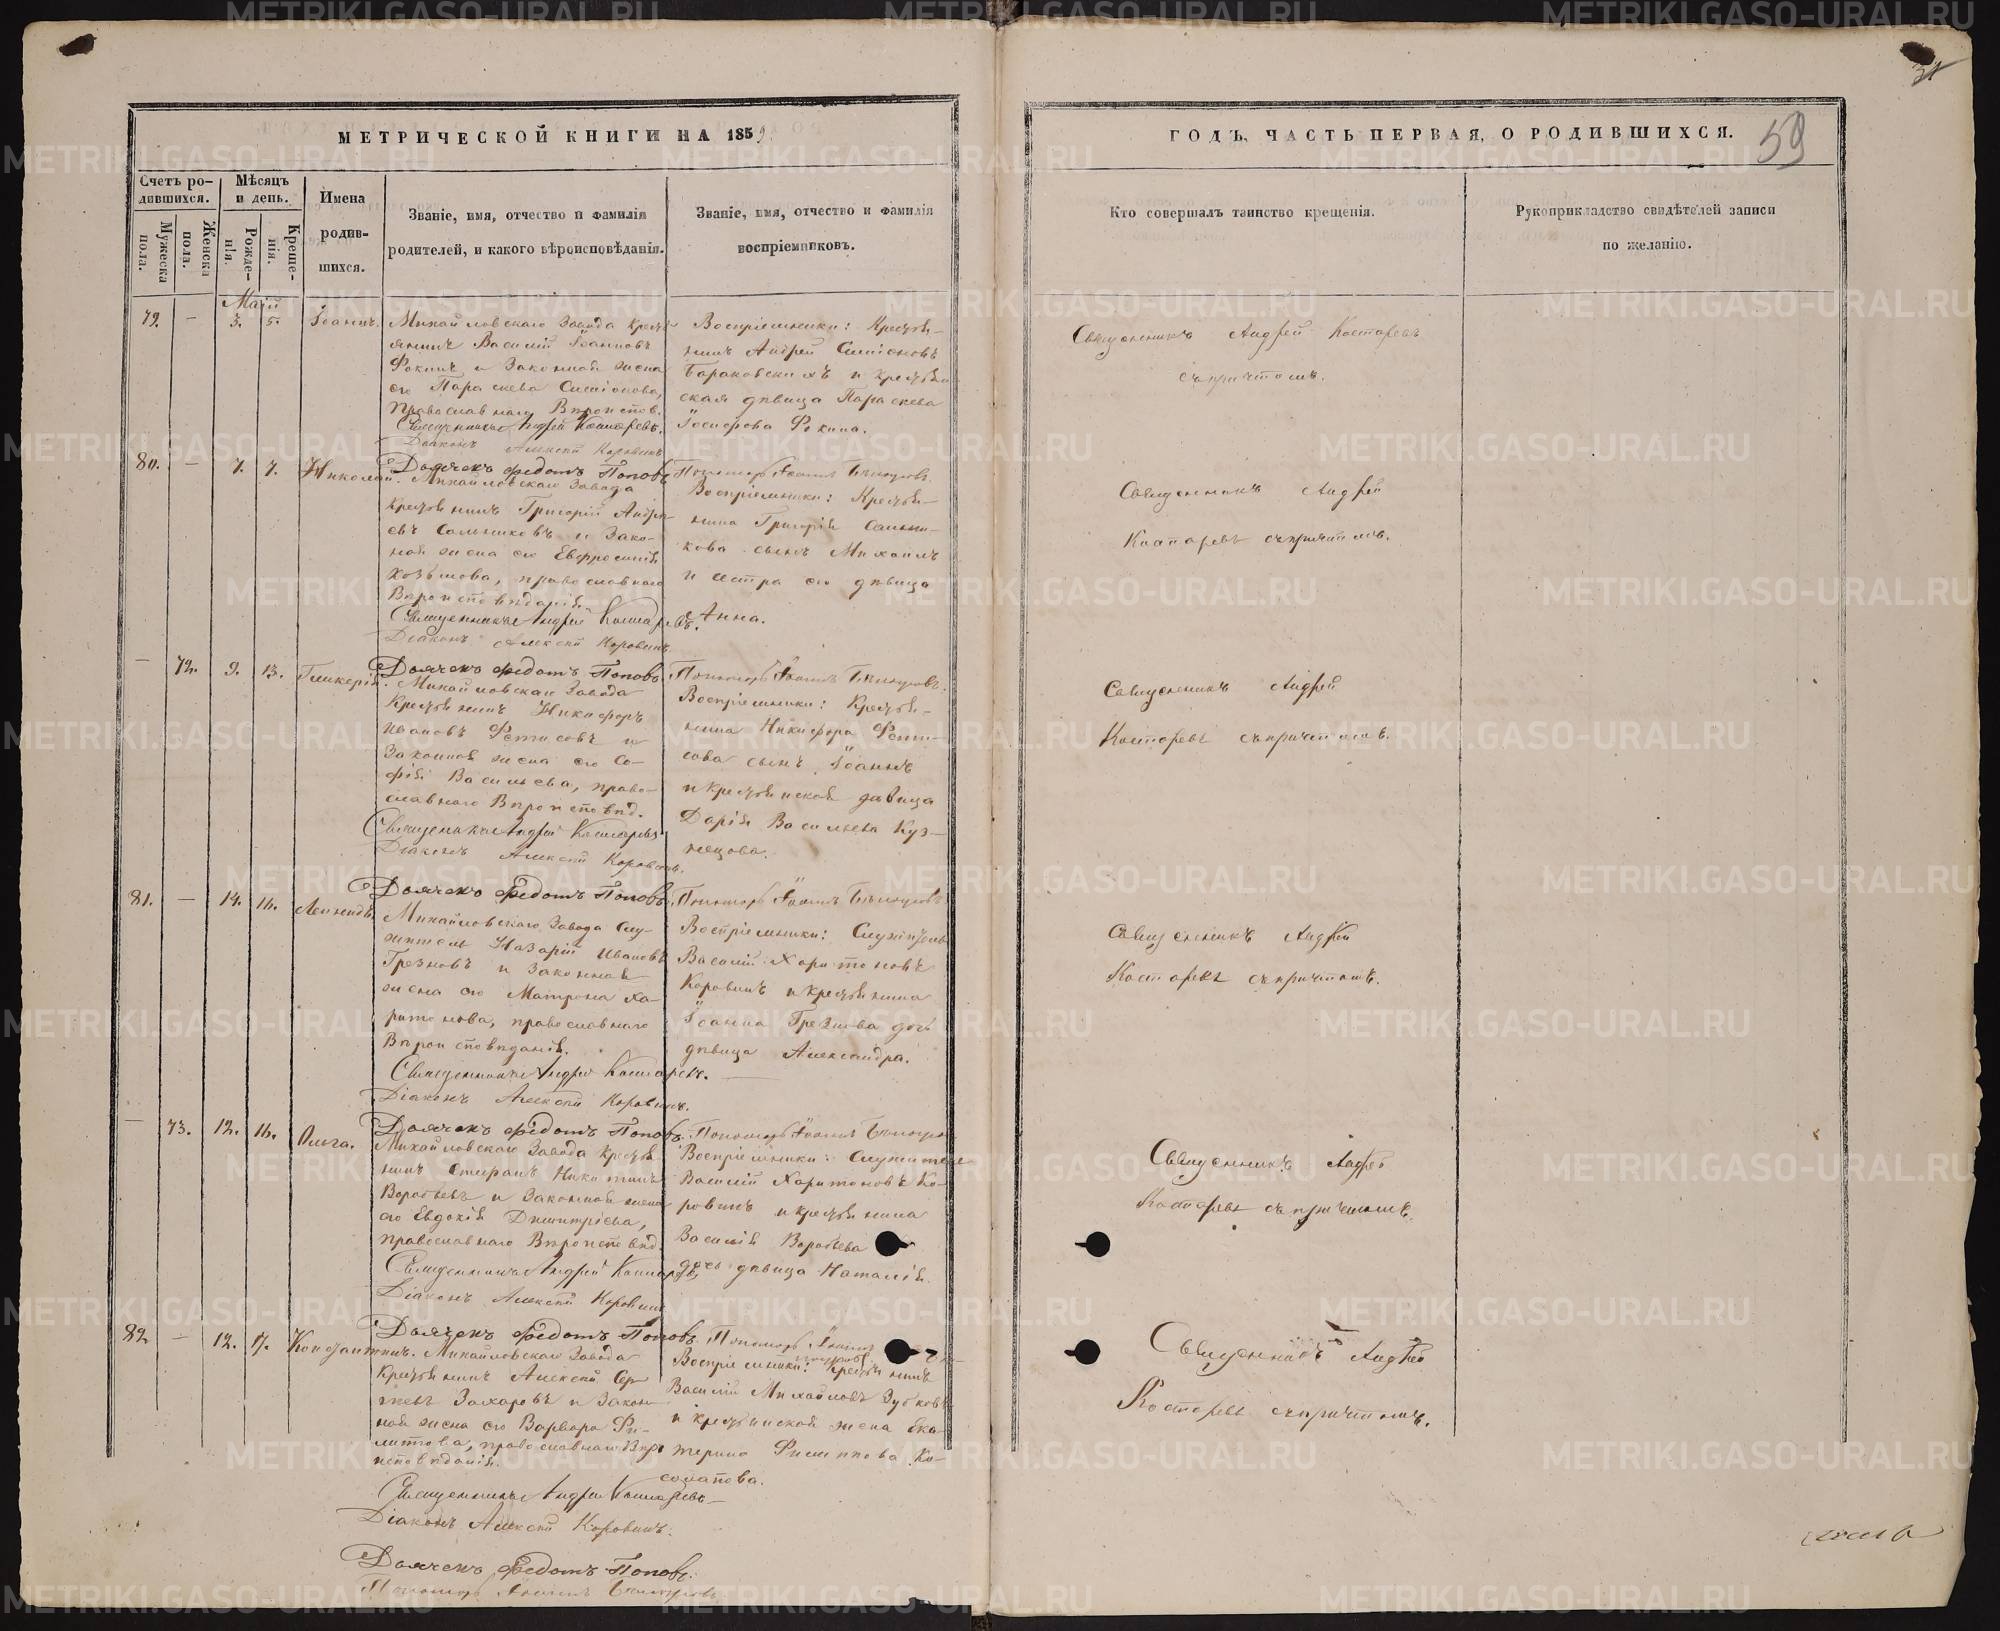 МЕТРИЧЕСКОЙ КНИГИ НА 1859
ГОДЪ, ЧАСТЬ ПЕРВАЯ, О РОДИВШИХСЯ.
59
Счетъ ро-
дившихся.
Мужеска
пола.
Женска
пола.
Мѣсяцъ
и день.
Рожде-
нія.
Креще-
нія.
Имена
родив-
шихся.
Званіе, имя, отчество и фамилія
родителей, и какого вѣроисповѣданія.
Званіе, имя, отчество и фамилія
воспріемниковъ.
Кто совершалъ таинство крещенія.
Рукоприкладство свидѣтелей записи
по желанію.
Маій
79. — 3. 5. Іоаннъ.
Михайловскаго Завода Крестья-
янинъ Василій Іоанновъ
Фокинъ и Законная жена
его Параскева Симіонова,
Православнаго Вѣроисповѣд.
Священникъ Андрей Костаревъ.
Діаконъ Алексій Коровинъ
Дьячекъ Федотъ Поповъ
Воспріемники: Крестья-
нинъ Андрей Симіоновъ
и крестьян-
ская дѣвица Параскева
Фокина.
Пономарь Іоаннъ
Священникъ Андрей Костаревъ
съ причтомъ.
80. — 7. 7. Николай.
Михайловскаго Завода
Крестьянинъ Григорій Андре-
евъ Сальниковъ и Закон-
ная жена его Евфросинія
Козьмова, православнаго
Вѣроисповѣданія.
Священникъ Андрей Костаревъ.
Діаконъ Алексій Коровинъ
Дьячекъ Федотъ Поповъ
Воспріемники: Крестья-
нина Григорія Сальни-
кова сынъ Михаилъ
и сестра его дѣвица
Анна.
Пономарь Іоаннъ
Священникъ Андрей
Костаревъ съ причтомъ.
— 72. 9. 13. Гликерія.
Михайловскаго Завода
Крестьянинъ Никифоръ
Ивановъ Фетисовъ и
Законная жена его Со-
фія Васильева, право-
славнаго Вѣроисповѣд.
Священникъ Андрей Костаревъ
Діаконъ Алексій Коровинъ.
Дьячекъ Федотъ Поповъ
Воспріемники: Крестья-
нина Никифора Фети-
сова сынъ Іоаннъ
и крестьянская дѣвица
Дарія Васильева Куз-
нецова.
Пономарь Іоаннъ
Священникъ Андрей
Костаревъ съ причтомъ.
81. — 14. 16. Леонидъ.
Михайловскаго Завода Слу-
житель Назарій Ивановъ
Грезновъ и Законная
жена его Матрона Ха-
ритонова, православнаго
Вѣроисповѣданія.
Священникъ Андрей Костаревъ.
Діаконъ Алексій Коровинъ.
Дьячекъ Федотъ Поповъ
Воспріемники: Служитель
Василій Харитоновъ
Коровинъ и крестьянина
Іоанна Грезнова дочь
дѣвица Александра.
Пономарь Іоаннъ
Священникъ Андрей
Костаревъ съ причтомъ.
— 73. 12. 16. Ольга.
Михайловскаго Завода Крестья-
нинъ Стефанъ Никитинъ
Воробьевъ и Законная жена
его Евдокія Димитріева,
православнаго Вѣроисповѣд.
Священникъ Андрей Костаревъ
Діаконъ Алексій Коровинъ
Дьячекъ Федотъ Поповъ
Воспріемники: Служитель
Василій Харитоновъ Ко-
ровинъ и крестьянина
Василія Воробьева
дочь дѣвица Наталія.
Пономарь Іоаннъ
Священникъ Андрей
Костаревъ съ причтомъ.
82. — 12. 17. Константинъ.
Михайловскаго Завода
Крестьянинъ Алексій Сер-
гѣевъ Захаровъ и Закон-
ная жена его Варвара
православнаго Вѣро-
исповѣданія.
Священникъ Андрей Костаревъ
Діаконъ Алексій Коровинъ.
Дьячекъ Федотъ Поповъ.
Пономарь Іоаннъ
Воспріемники: Крестьянинъ
Василій Михайловъ Зубковъ
и крестьянская жена Ека-
терина Филиппова
Священникъ Андрей
Костаревъ съ причтомъ.
METRIKI.GASO-URAL.RU